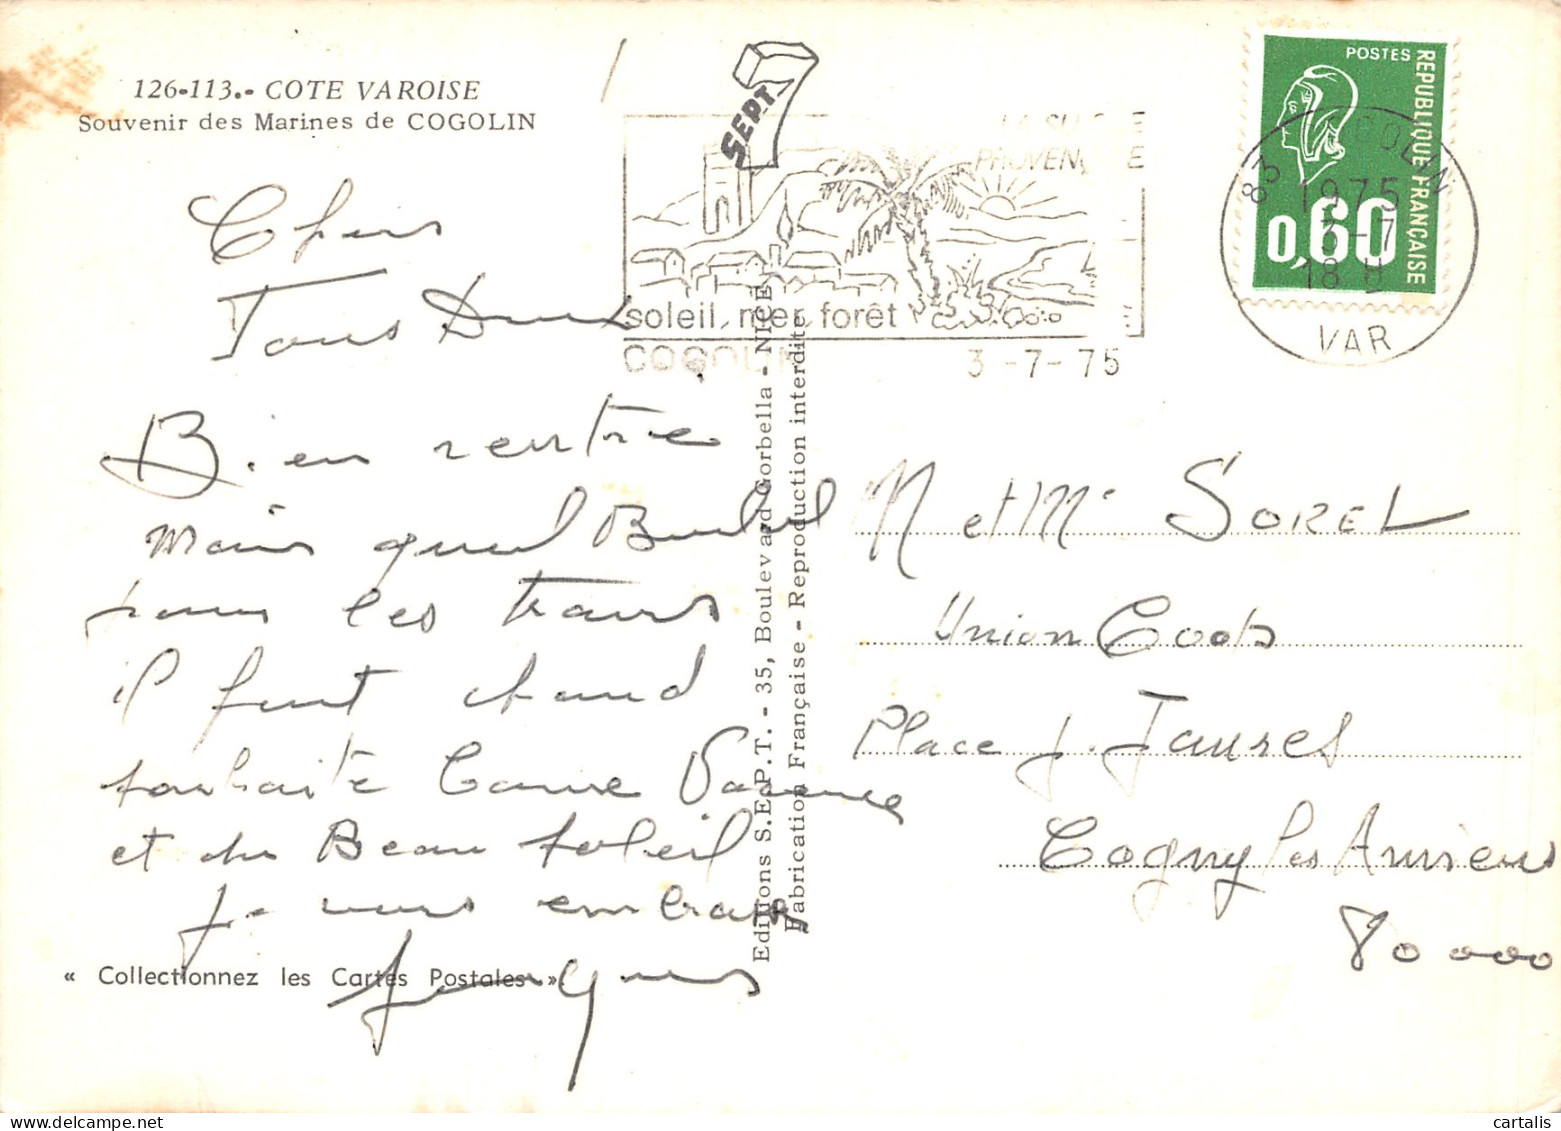 126-113.- COTE VAROISE
Souvenir des Marines de COGOLIN
Chers
Tous Deux
Bien rentré
mais quel Boulot
pour les trains
il fait chaud
souhaite Bonne Vacance
et du Beau soleil
Je vous embrasse
Jacques
« Collectionnez les Cartes Postales »
SEPT.
Editions S.E.P.T. - 35, Boulevard Gorbella - NICE
Fabrication Française - Reproduction interdite
PROVENÇALE
soleil, mer, forêt
COGOLIN 3-7-75
POSTES
REPUBLIQUE FRANÇAISE
0,60
83 COGOLIN
1975
3-7
18 H
VAR
M et Me SOREL
Union Coops
Place J. Jaures
Cagny les Amiens
80000
cartalis